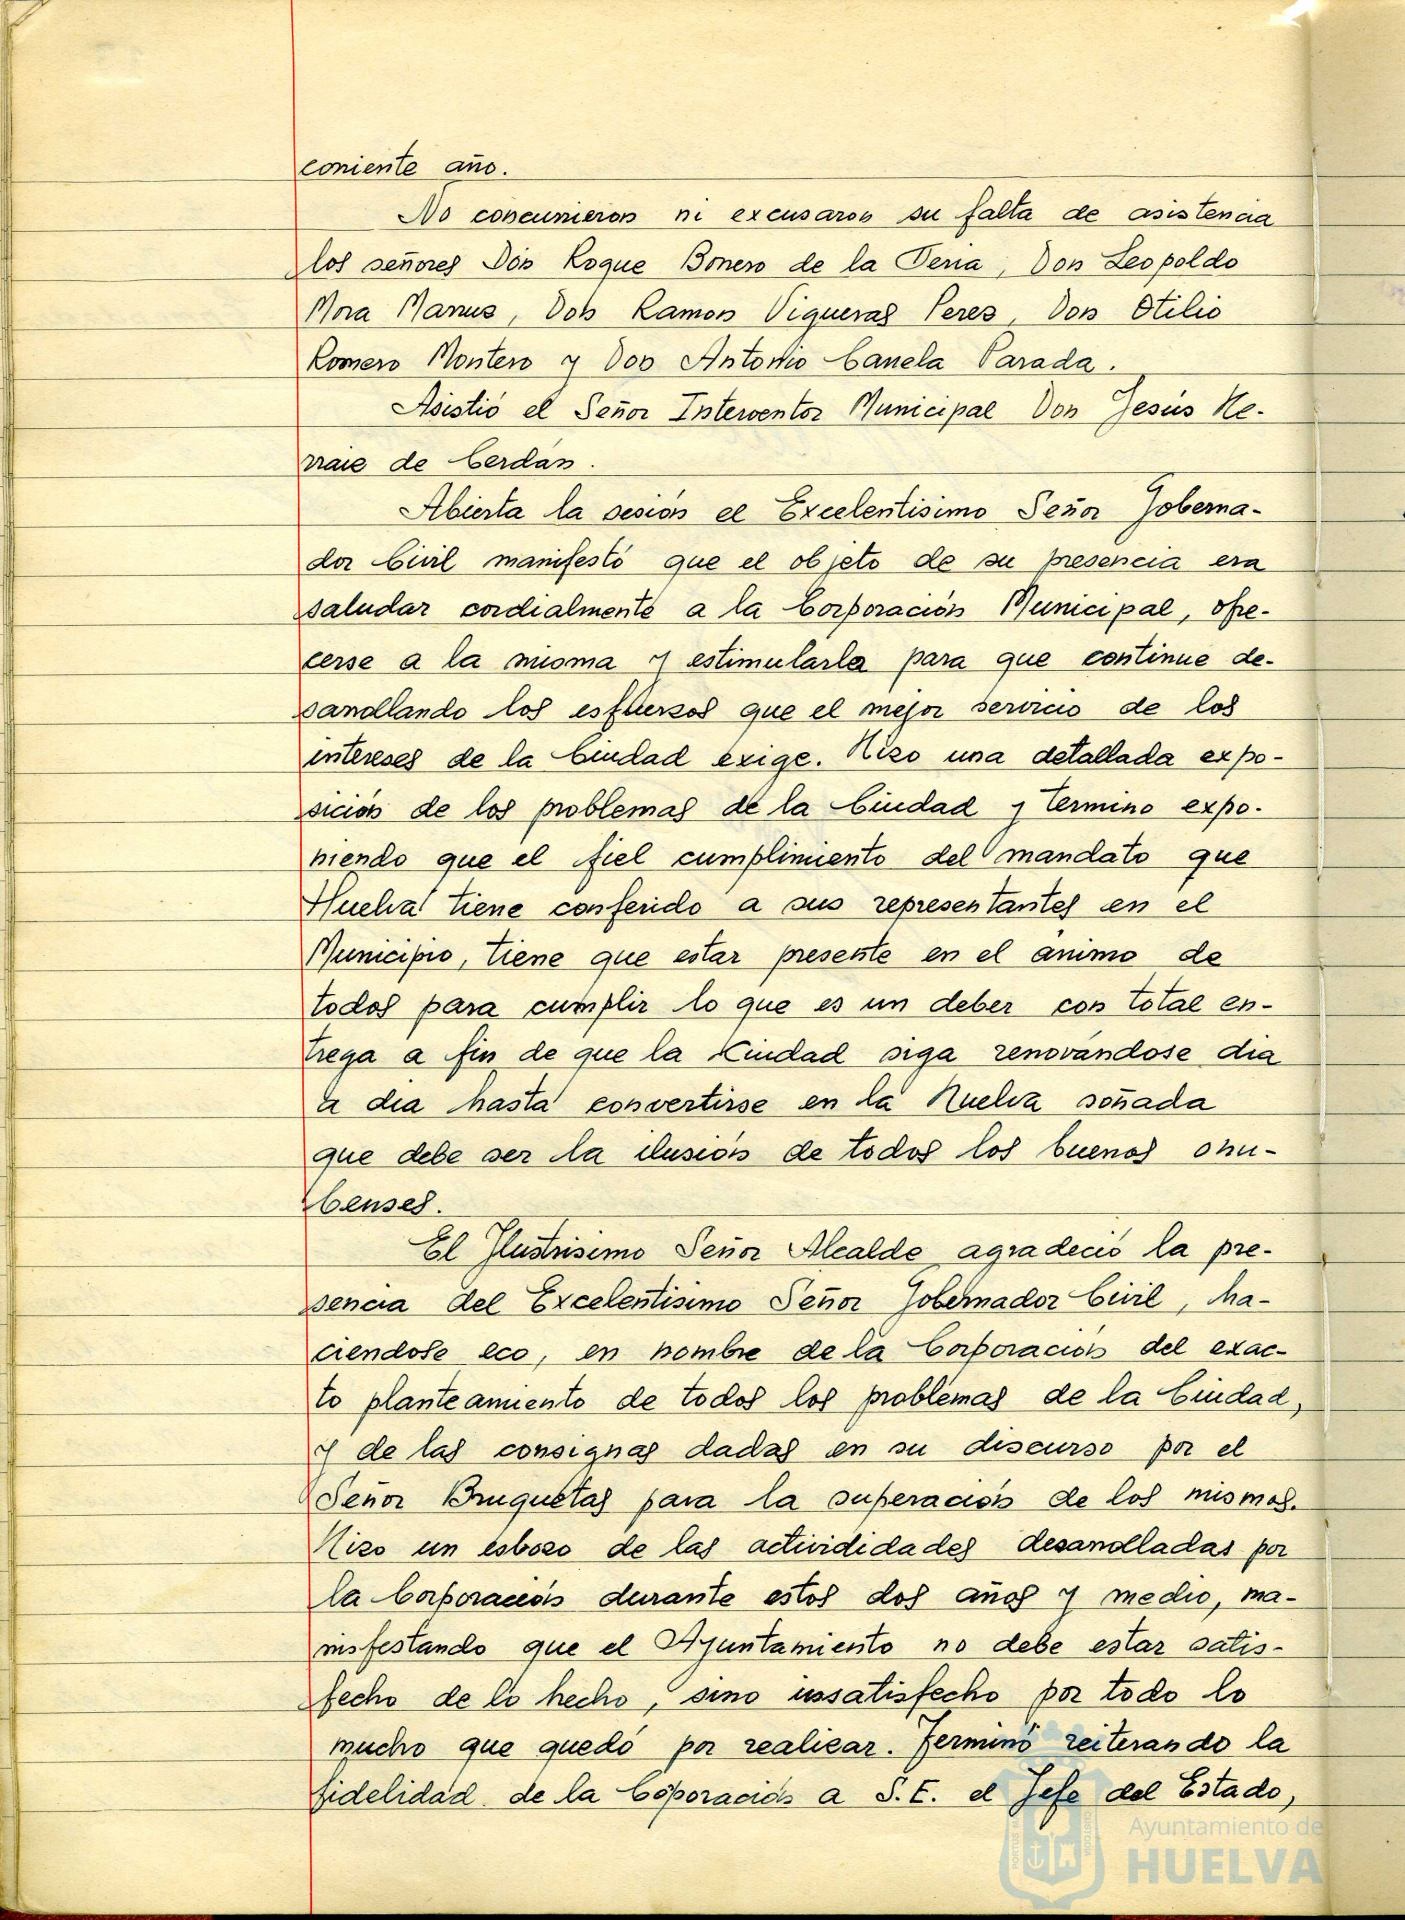 corriente año.
No concurrieron ni excusaron su falta de asistencia
los señores Don Roque Borrero de la Feria, Don Leopoldo
Mora Marrus, Don Ramon Vigueras Peres, Don Otilio
Romero Montero y Don Antonio Canela Parada.
Asistió el Señor Interventor Municipal Don Jesús He-
rraiz de Cerdán.
Abierta la sesión el Excelentisimo Señor Goberna-
dor Civil manifestó que el objeto de su presencia era
saludar cordialmente a la Corporación Municipal, ofre-
cerse a la misma y estimularla para que continue de-
sarrollando los esfuerzos que el mejor servicio de los
intereses de la Ciudad exige. Hizo una detallada expo-
sición de los problemas de la Ciudad y termino expo-
niendo que el fiel cumplimiento del mandato que
Huelva tiene conferido a sus representantes en el
Municipio, tiene que estar presente en el animo de
todos para cumplir lo que es un deber con total en-
trega a fin de que la Ciudad siga renovandose dia
a dia hasta convertirse en la Huelva soñada
que debe ser la ilusión de todos los buenos onu-
benses.
El Ilustrisimo Señor Alcalde agradeció la pre-
sencia del Excelentisimo Señor Gobernador Civil, ha-
ciendose eco, en nombre de la Corporación del exac-
to planteamiento de todos los problemas de la Ciudad,
y de las consignas dadas en su discurso por el
Señor Bruquetas para la superación de los mismos.
Hizo un esbozo de las activididades desarrolladas por
la Corporación durante estos dos años y medio, ma-
nisfestando que el Ayuntamiento no debe estar satis-
fecho de lo hecho, sino insatisfecho por todo lo
mucho que quedó por realizar. Terminó reiterando la
fidelidad de la Coporación a S.E. el Jefe del Estado,
Ayuntamiento de
HUELVA